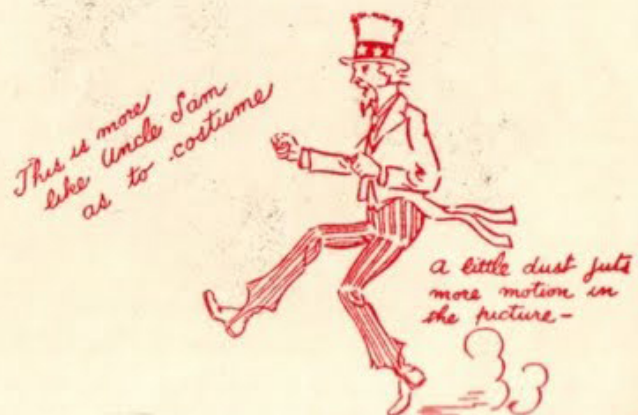 This is more
like Uncle Sam
as to costume
a little dust puts
more motion in
the picture-